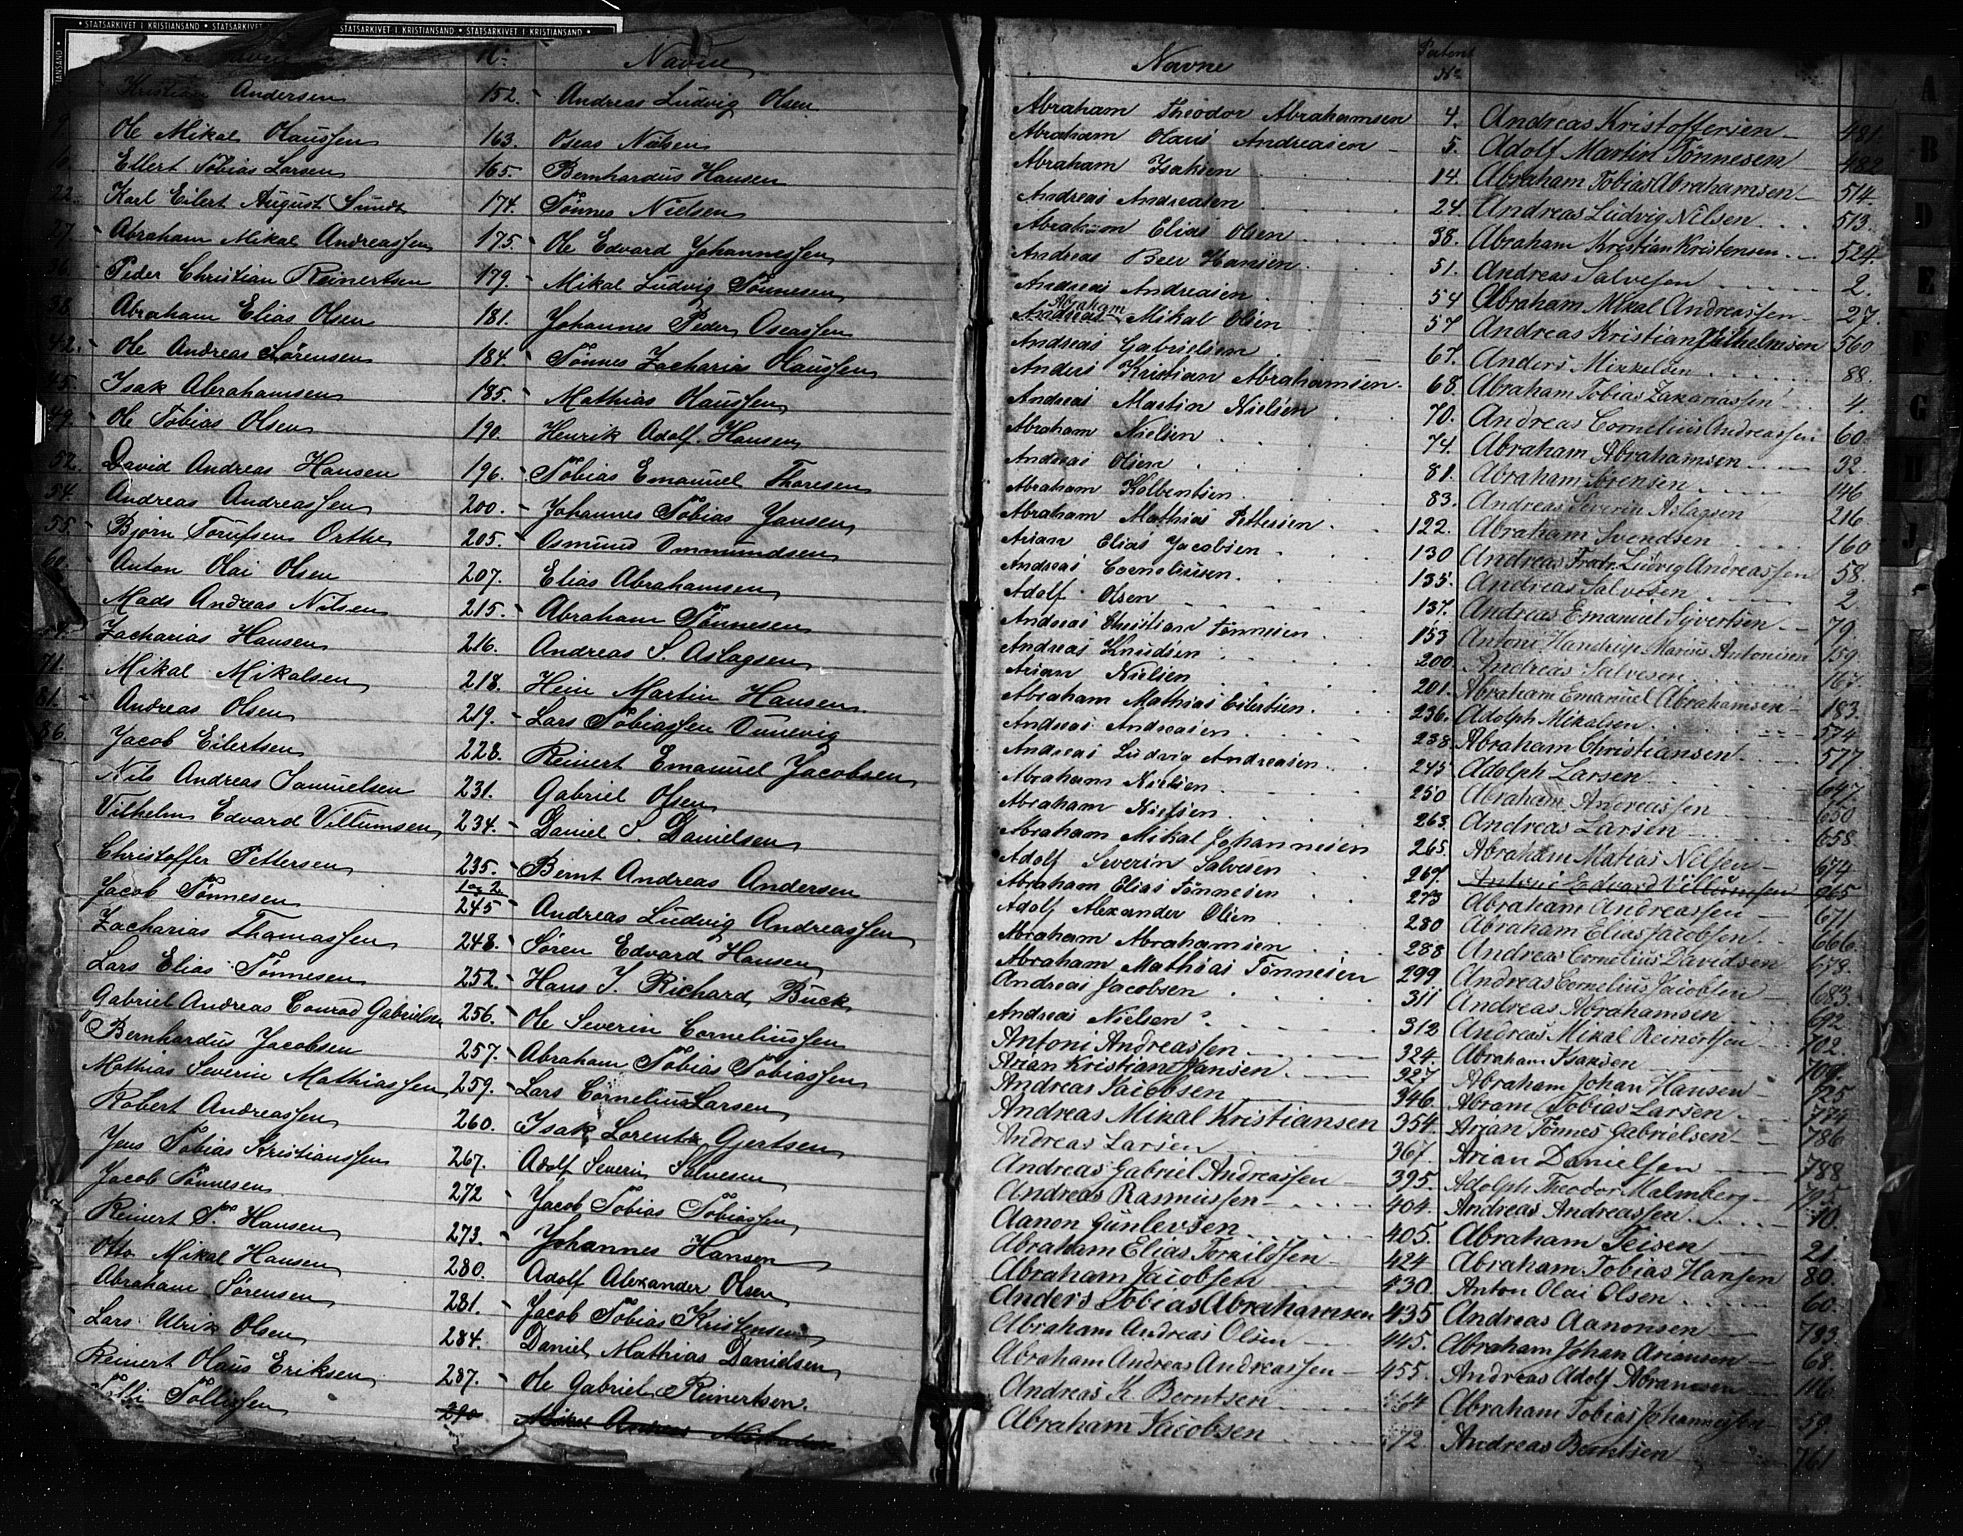 STATSARKIVET I KRISTIANSAND • STATSARKIVET I KRISTIANSAND • STATSARKIVET I KRISTIANSAND
Navne
Kristian Andersen
Ole Mikal Olaussen
Eilert Tobias Larsen
22. Karl Eilert August Sundt
27. Abraham Mikal Andreassen
36. Peder Christian Reinertsen
38. Abraham Elias Olsen
42. Ole Andreas Sørensen
45. Isak Abrahamsen
49. Ole Tobias Olsen
52. David Andreas Hansen
54. Andreas Andreassen
55. Bjørn Torufsen Orthe
60. Anton Olai Olsen
Mads Andreas Nilsen
Zacharias Hansen
71. Mikal Mikalsen
81. Andreas Olsen
86. Jacob Eilertsen
Nils Andreas Samuelsen
Vilhelm Edvard Villumsen
Christoffer Pettersen
Jacob Tønnesen
Zacharias Thomassen
Lars Elias Tønnesen
Gabriel Andreas Conrad Gabrielsen
Bernhardus Jacobsen
Mathias Severin Mathiassen
Robert Andreassen
Jens Tobias Kristianssen
Jacob Tønnesen
Reinert Hansen
Otto Mikal Hansen
Abraham Sørensen
Lars Ulrik Olsen
Reinert Olaus Eriksen
Tollissen
N: Navne
152. Andreas Ludvig Olsen
163. Oseas Nilsen
165. Bernhardus Hansen
174. Tønnes Nielsen
175. Ole Edvard Johannessen
179. Mikal Ludvig Tønnesen
181. Johannes Peder Oseassen
184. Tønnes Zacharias Olaussen
185. Mathias Olaussen
190. Henrik Adolf Hansen
196. Tobias Emanuel Thoresen
200. Johannes Tobias Jansen
205. Osmund Ommundsen
207. Elias Abrahamsen
215. Abraham Tønnesen
216. Andreas S. Aslagsen
218. Hein Martin Hansen
219. Lars Tobiassen Dunevig
228. Reinert Emanuel Jacobsen
231. Gabriel Olsen
234. Daniel S. Danielsen
235. Bernt Andreas Andersen
1 og 2
245 Andreas Ludvig Andreassen
248. Søren Edvard Hansen
252. Hans J. Richard Buck
256. Ole Severin Corneliussen
257. Abraham Tobias Tobiassen
259. Lars Cornelius Larsen
260. Isak Lorentz Gjertsen
267. Adolf Severin Salvesen
272 Jacob Tobias Tobiassen
273. Johannes Hansen
280. Adolf Alexander Olsen
281. Jacob Tobias Kristensen
284. Daniel Mathias Danielsen
287. Ole Gabriel Reinertsen
290 Mikal Andreas
Navne Patent No
Abraham Theodor Abrahamsen 4.
Abraham Olaus Andreasen 5.
Abraham Isaksen 14.
Andreas Andreasen 24.
Abraham Elias Olsen 38.
Andreas Beer Hansen 51.
Andreas Andreasen 54
Abraham
Andreas Mikal Olsen 57
Andreas Gabrielsen 67.
Anders Kristian Abrahamsen 68.
Andreas Martin Nielsen 70.
Abraham Nielsen 74.
Andreas Olsen 81.
Abraham Kolbentsen 83.
Abraham Mathias Pettersen 122.
Arian Elias Jacobsen 130
Andreas Corneliusen 135.
Adolf Olsen 137.
Andreas Christian Tønnesen 153
Andreas Knudsen 200.
Arian Nielsen 201.
Abraham Mathias Eilertsen 236.
Andreas Andreasen 238
Andreas Ludvig Andreasen 245
Abraham Nielsen 250
Abraham Nielsen 263
Abraham Mikal Johannesen 265.
Adolf Severin Salvesen 267.
Abraham Elias Tønnesen 273
Adolf Alexander Olsen 280
Abraham Abrahamsen 288
Abraham Mathias Tønnesen 299
Andreas Jacobsen 311
Andreas Nielsen 312
Antoni Andreassen 324.
Arian Kristian Jansen 327
Andreas Jacobsen 346.
Andreas Mikal Kristiansen 354.
Andreas Larsen 367.
Andreas Gabriel Andreassen 395.
Andreas Rasmussen 404.
Aanon Gunlevsen 405.
Abraham Elias Torkildsen 424
Abraham Jacobsen 430.
Anders Tobias Abrahamsen 435
Abraham Andreas Olsen 445.
Abraham Andreas Andreassen 455.
Andreas K. Berntsen 464
Abraham Jacobsen 72.
Andreas Kristoffersen 481.
Adolf Martin Tønnesen 482
Abraham Tobias Abrahamsen 514.
Andreas Ludvig Nilsen 513.
Abraham Kristian Kristensen 524
Andreas Salvesen 2.
Abraham Mikal Andreassen 27.
Andreas Kristian Vilhelmsen 560
Anders Mikkelsen 88.
Abraham Tobias Zakariassen 4.
Andreas Cornelius Andreassen 60.
Abraham Abrahamsen 32.
Abraham Sørensen 146
Andreas Severin Aslagsen 216
Abraham Svendsen 160
Andreas Fredr. Ludvig Andreassen 58
Andreas Salvesen 2
Andreas Emanuel Syvertsen 79
Antoni Handrup Marius Antonisen 159.
Andreas Salvesen 167.
Abraham Emanuel Abrahamsen 183.
Adolph Mikalsen 574
Abraham Christiansen 577
Adolph Larsen 647
Abraham Andreassen 650
Andreas Larsen 658.
Abraham Matias Nilsen 674
Antoni Edvard Villumsen 665
Abraham Andreassen 671
Abraham Elias Jacobsen 666.
Andreas Cornelius Davidsen 678.
Andreas Cornelius Jacobsen 683.
Andreas Abrahamsen 692
Andreas Mikal Reinertsen 702.
Abraham Isaksen 709
Abraham Johan Hansen 725
Abram Tobias Larsen 774
Arian Tønnes Gabrielsen 786
Arian Danielsen 788
Adolph Theodor Malmberg
Andreas Andreassen 10.
Abraham Teisen 21.
Abraham Tobias Hansen 80.
Anton Olai Olsen 60.
Andreas Aanonsen 783.
Abraham Johan Aranson 68.
Andreas Adolf Abramsen 116
Abraham Tobias Johannessen 59.
Andreas Berntsen 761
A
B
D
E
F
G
H
J